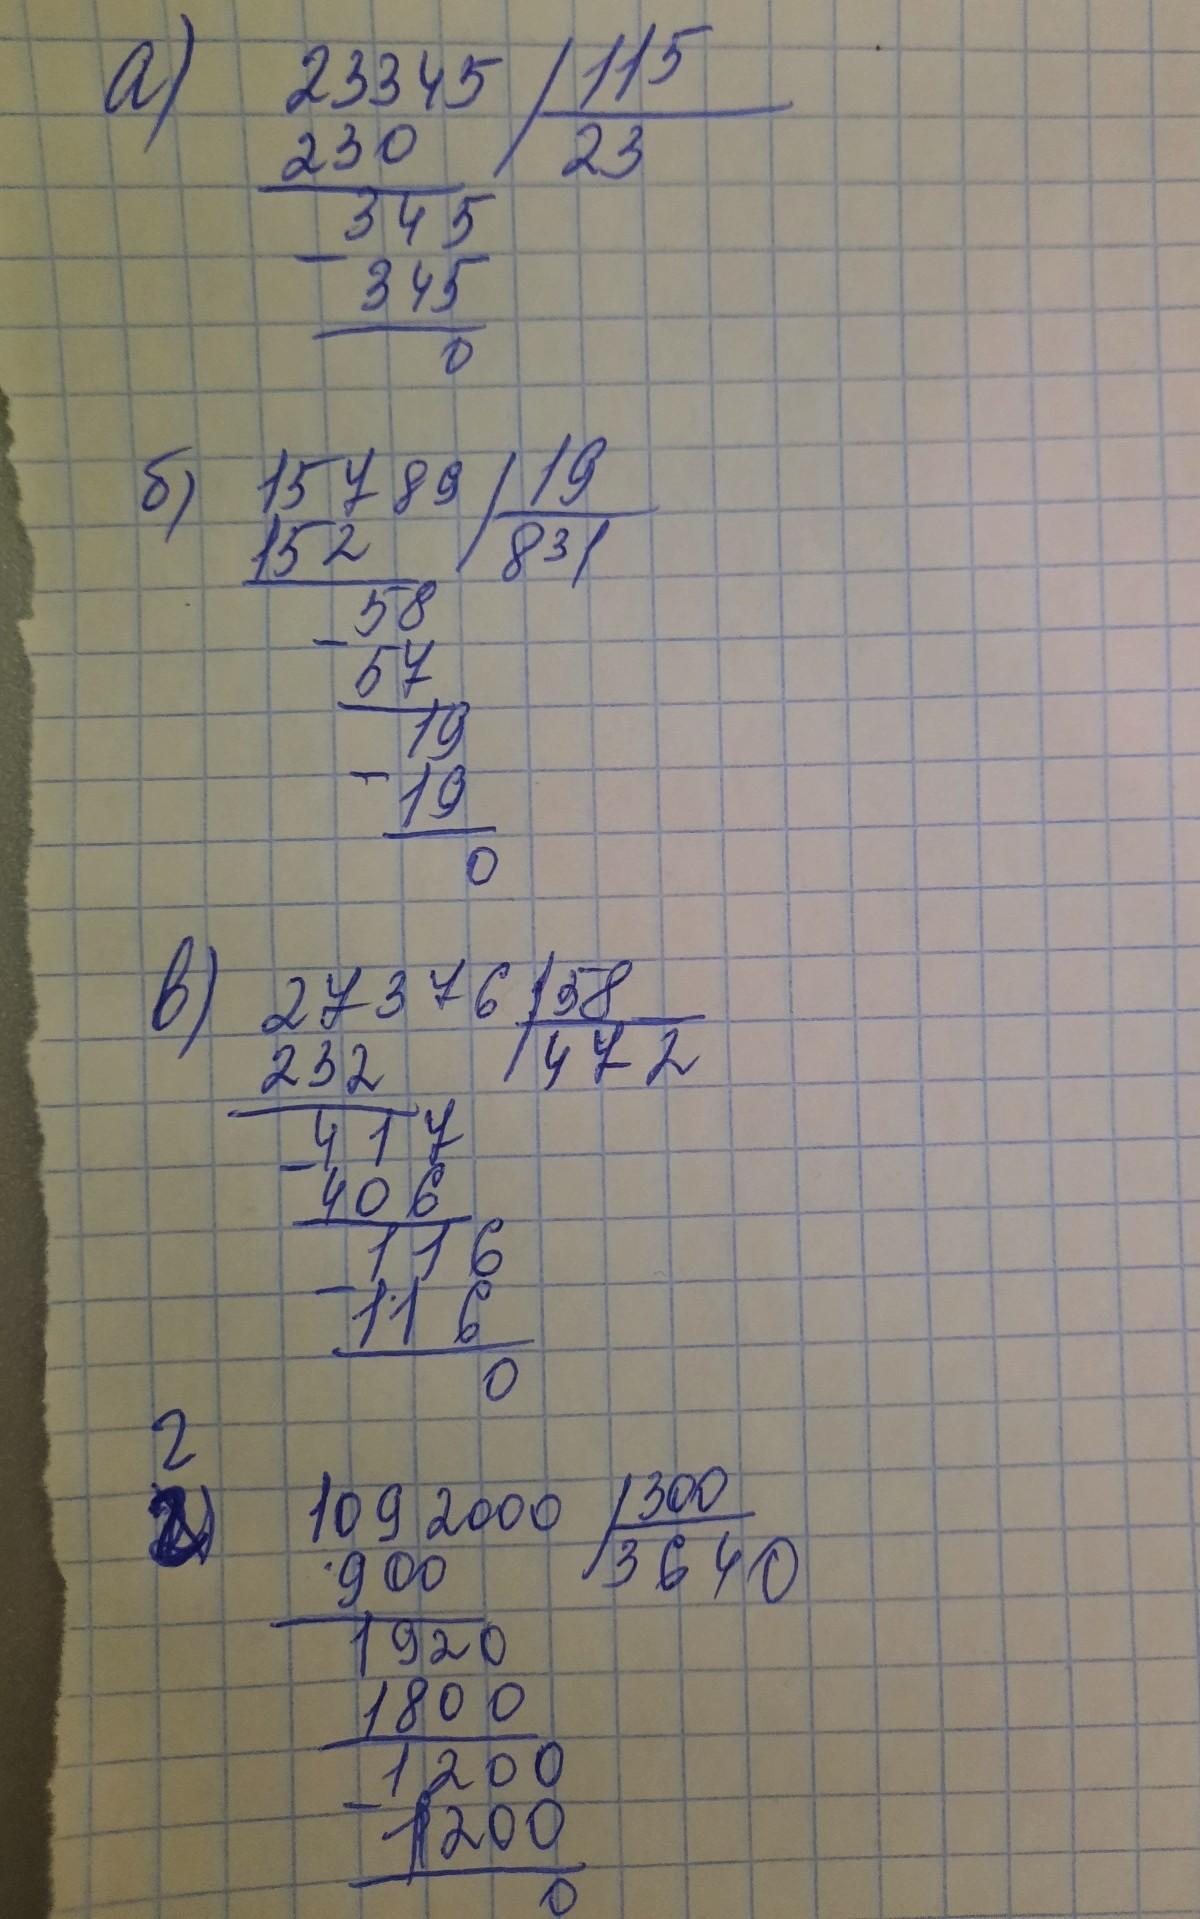 а) 23345 115
230 23
- 345
345
0
б) 15789 19
152 831
- 58
57
19
- 19
0
в) 27376 58
232 472
- 417
406
116
- 116
0
г
) 1092000 300
900 3640
1920
1800
1200
- 1200
0